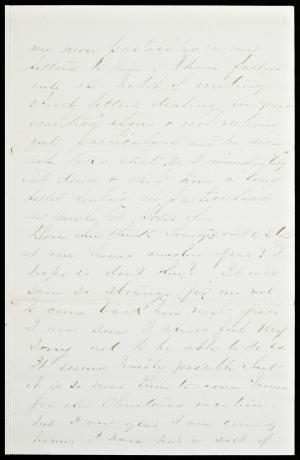 me more particular in my
letters to him. I have fallen
into the habit of writing
short letters dealing in gen-
eralities alone & not entering
into particulars and he does
not like that so I immediately
sat down & wrote him a long
letter dealing in particulars
as much as
Does she think will stay
at our house another year? I
hope so don't you? It will
seem so strange for me not
to come back here next year.
I am sure I should feel very
sorry not to be able to do so
It seems hardly possible that
it is so near time to come home
for the Christmas vacation.
but I am glad I am coming
home. I have had a sort of